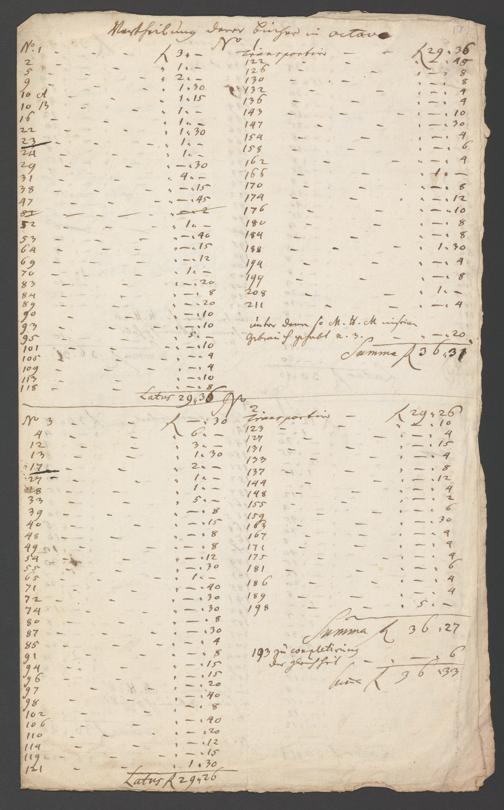 Vertheilung derer bücher in octavo
No. 1 R 3. —
2 1. —
5 2. —
9 1. 30
10 A 1. 15
10 B 1. —
16 1. —
22 1. 30
23 1. —
24 1. —
29 —. 30
31 4. —
38 —. 15
47 —. 45
52 1. —
53 —. 40
64 —. 15
69 —. 12
70 1. —
83 —. 20
84 —. 8
89 —. 20
90 —. 10
93 —. 10
95 5. —
101 —. 10
105 —. 4
109 —. 4
113 —. 10
118 —. 8
Latus 29. 36
No
Transportiren R 29. 36
122 2. 45
126 —. 8
130 —. 8
132 —. 4
136 —. 4
143 —. 10
147 —. 30
154 —. 4
158 —. 6
162 —. 4
166 1. —
170 —. 8
174 —. 12
176 —. 10
180 —. 8
184 —. 8
188 1. 30
194 —. 4
199 —. 8
208 1. —
211 —. 4
gebrauch gehabt n. 3. —. 20
Summa R 36. 31
No 3 R —. 30
4 6. —
12 3. —
13 1. 30
17 2. —
27 1. —
28 1. —
33 5. —
39 —. 8
40 —. 15
48 —. 8
49 —. 8
54 —. 12
55 —. 30
65 1. —
71 —. 40
72 —. 30
74 —. 30
80 —. 8
87 —. 30
85 —. 4
91 —. 8
94 —. 15
96 —. 15
97 —. 20
98 —. 40
102 —. 8
106 —. 40
110 —. 20
114 —. 12
119 —. 15
121 1. 30
Latus R 29. 26
No 2
Transportiren R 29. 26
123 —. 10
127 —. 4
131 —. 15
133 —. 4
137 —. 8
144 —. 12
148 —. 4
155 —. 2
159 —. 6
163 —. 30
167 —. 4
171 —. 4
175 —. 4
181 —. 6
186 —. 4
189 —. 4
198 5. —
Summa R 36. 27
193 zu completirung
—. 6
R 36. 33